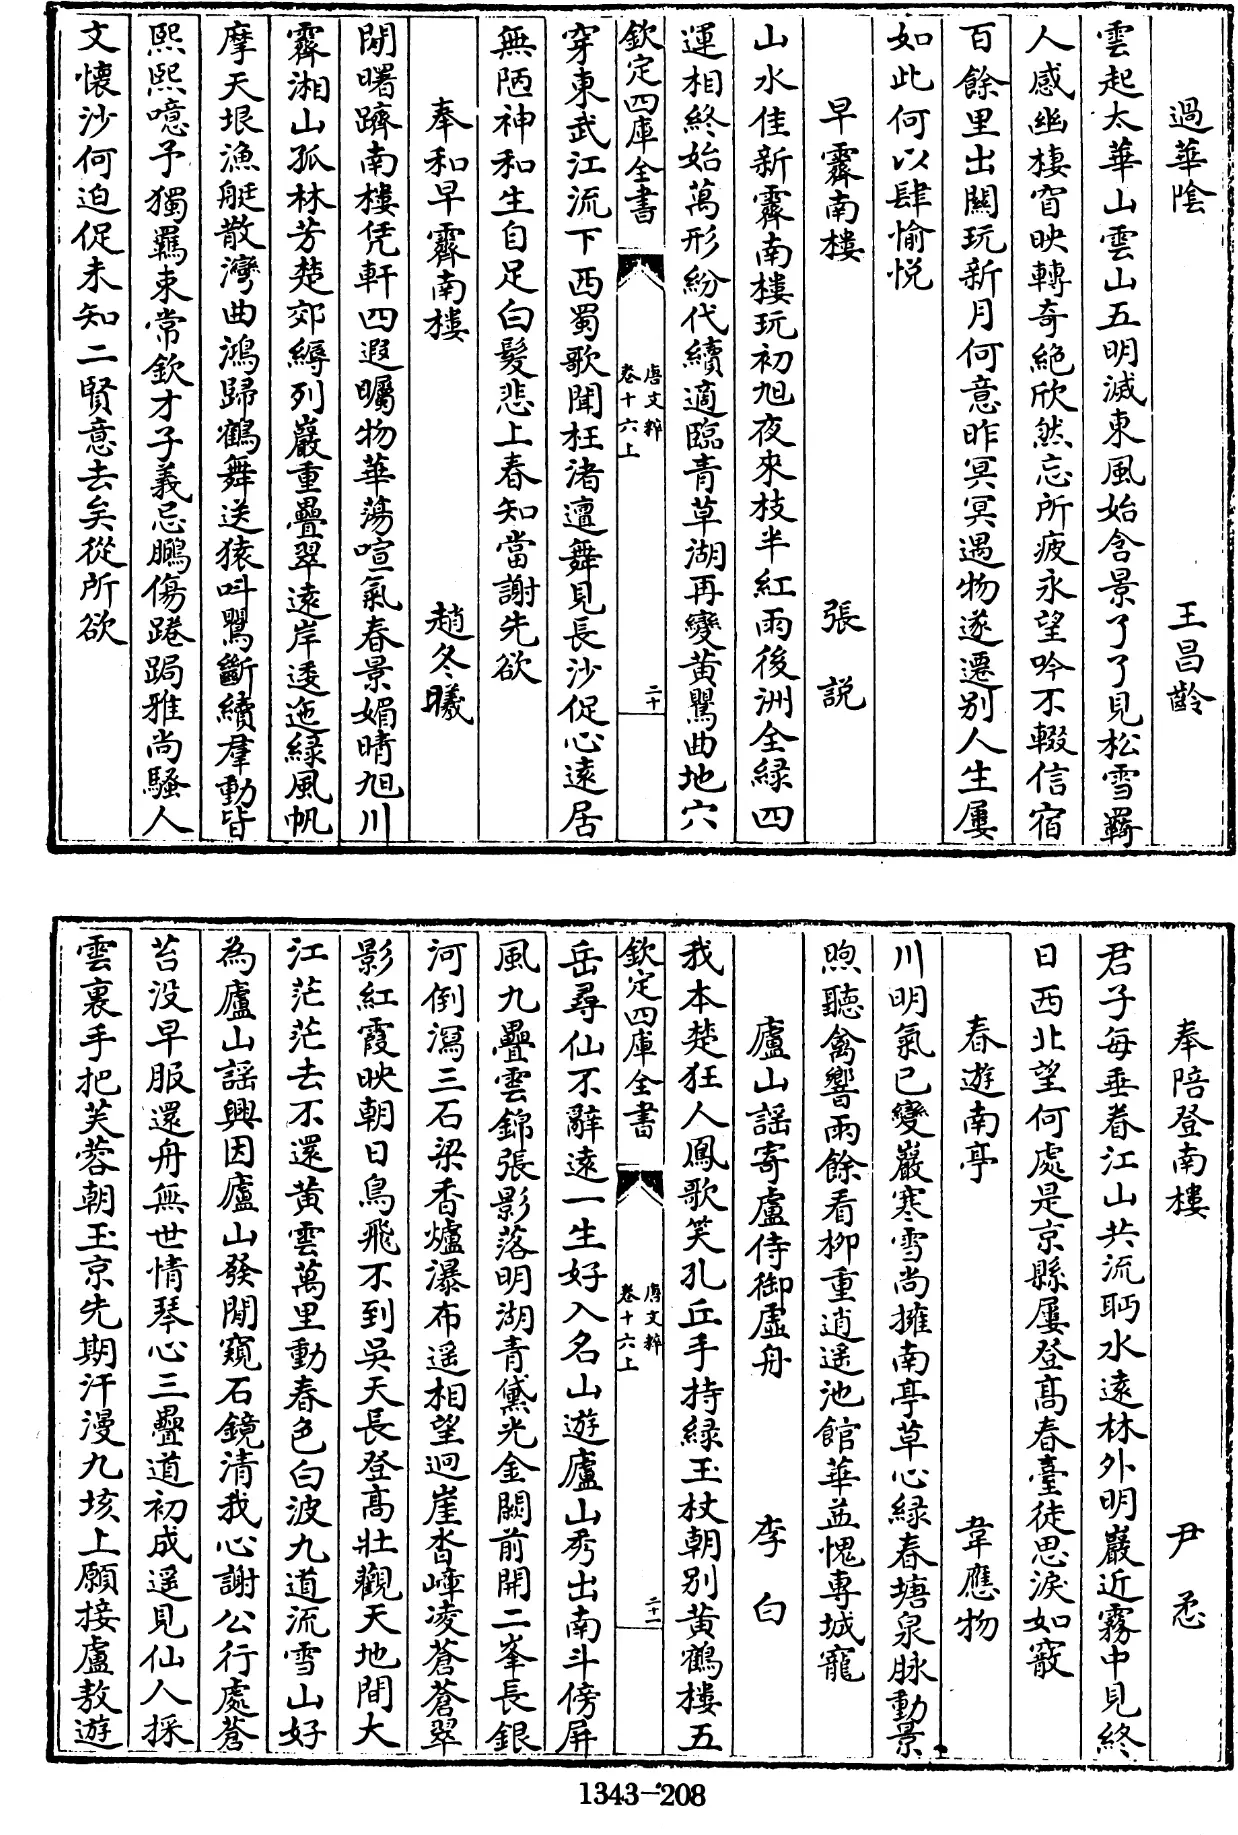 過華隂　王昌齡
雲起太華山雲山五明滅東風始含景了了見松雪羇
人感幽棲窅映轉奇絶欣然忘所疲永望吟不輟信宿
百餘里出關玩新月何意昨冥冥遇物遂遷别人生屢
如此何以肆愉悦
早霽南樓　張説
山水佳新霽南樓玩初旭夜來枝半紅雨後洲全緑四
運相終始萬形紛代續適臨青草湖再變黄鸎曲地穴
欽定四庫全書　唐文粹卷十六上　二十
穿東武江流下西蜀歌聞枉渚邅舞見長沙促心遠居
無陋神和生自足白髪悲上春知當謝先欲
奉和早霽南樓　趙冬曦
閒曙躋南樓凭軒四遐矚物華蕩暄氣春景媚晴旭川
霽湘山孤林芳楚郊縟列巖重疊翠遠岸逶迤緑風帆
摩天垠漁艇散灣曲鴻歸鶴舞送猿呌鸎斷續羣動皆
熙熙噫予獨羈束常欽才子義忌鵩傷踡跼雅尚騷人
文懐沙何迫促未知二賢意去矣從所欲
奉陪登南樓　尹懋
君子每垂眷江山共流眄水遠林外明巖近霧中見終
日西北望何處是京縣屢登髙春臺徒思淚如霰
春遊南亭　韋應物
川明氣已變巖寒雪尚擁南亭草心緑春塘泉脉動景
煦聽禽響雨餘看柳重逍遥池館華益愧専城寵
廬山謡寄盧侍御虚舟　李白
我本楚狂人鳳歌笑孔丘手持緑玉杖朝别黄鶴樓五
欽定四庫全書　唐文粹卷十六上　二十一
岳尋仙不辭遠一生好入名山遊廬山秀出南斗傍屏
風九疊雲錦張影落明湖青黛光金闕前開二峯長銀
河倒瀉三石梁香爐瀑布遥相望迥崖沓嶂凌蒼蒼翠
影紅霞映朝日鳥飛不到吳天長登髙壯觀天地間大
江茫茫去不還黄雲萬里動春色白波九道流雪山好
為廬山謡興因廬山發閒窺石鏡清我心謝公行處蒼
苔没早服還舟無世情琴心三疊道初成遥見仙人採
雲裏手把芙蓉朝玉京先期汗漫九垓上願接盧敖遊
1343-208